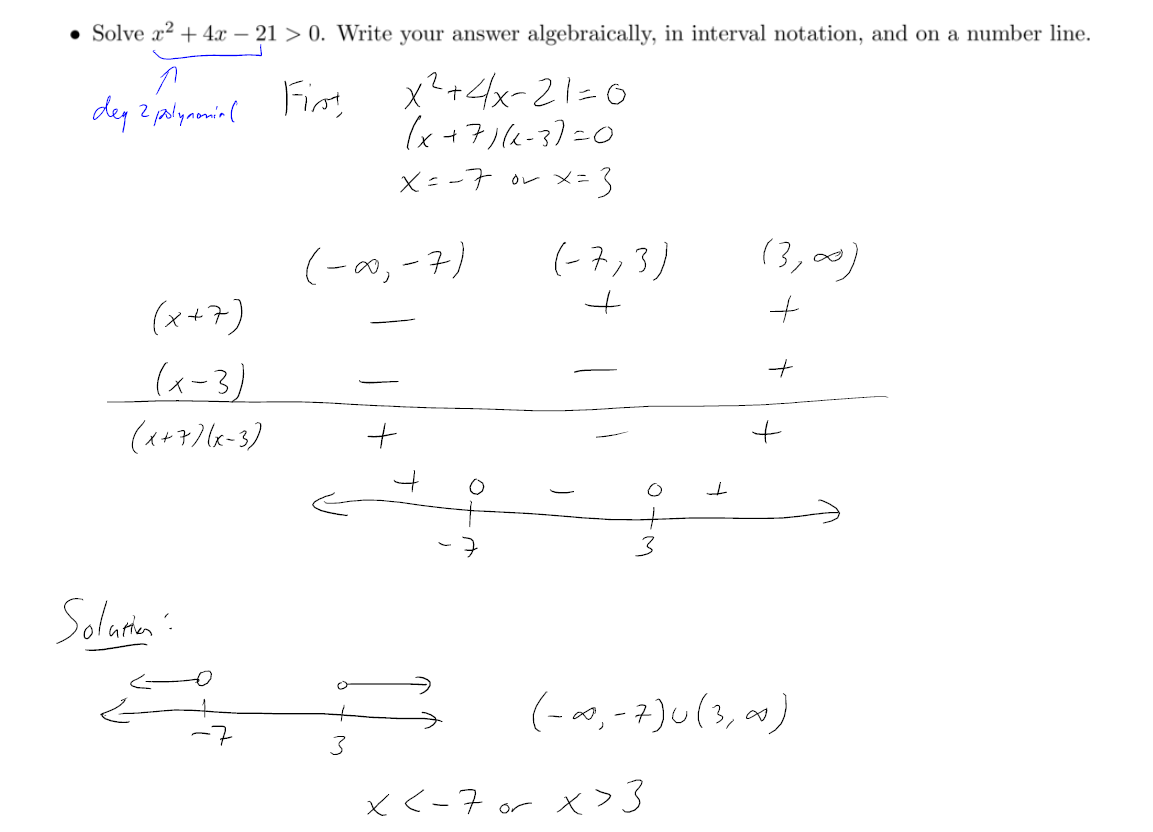 • Solve x² + 4x − 21 > 0. Write your answer algebraically, in interval notation, and on a number line.
deg 2 polynomial
First, x²+4x-21=0
(x+7)(x-3)=0
x=-7 or x=3
(-∞,-7) (-7,3) (3,∞)
(x+7) − + +
(x-3) − − +
(x+7)(x-3) + − +
+ 0 − 0 +
-7 3
Solution:
-7 3
(-∞,-7)∪(3,∞)
x<-7 or x>3